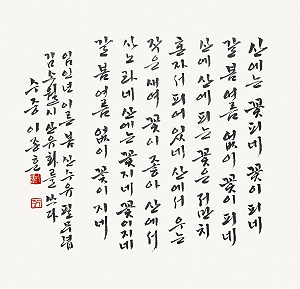 산에는 꽃피네 꽃이 피네
갈 봄 여름 없이 꽃이 피네
산에 산에 피는 꽃은 저만치
혼자서 피어 있네 산에서 우는
작은 새여 꽃이 좋아 산에서
사노라네 산에는 꽃지네 꽃이지네
갈 봄 여름 없이 꽃이 지네
임인년 이른 봄 산수유 필 무렵
김소월 시 산유화를 쓰다
수중 이종훈